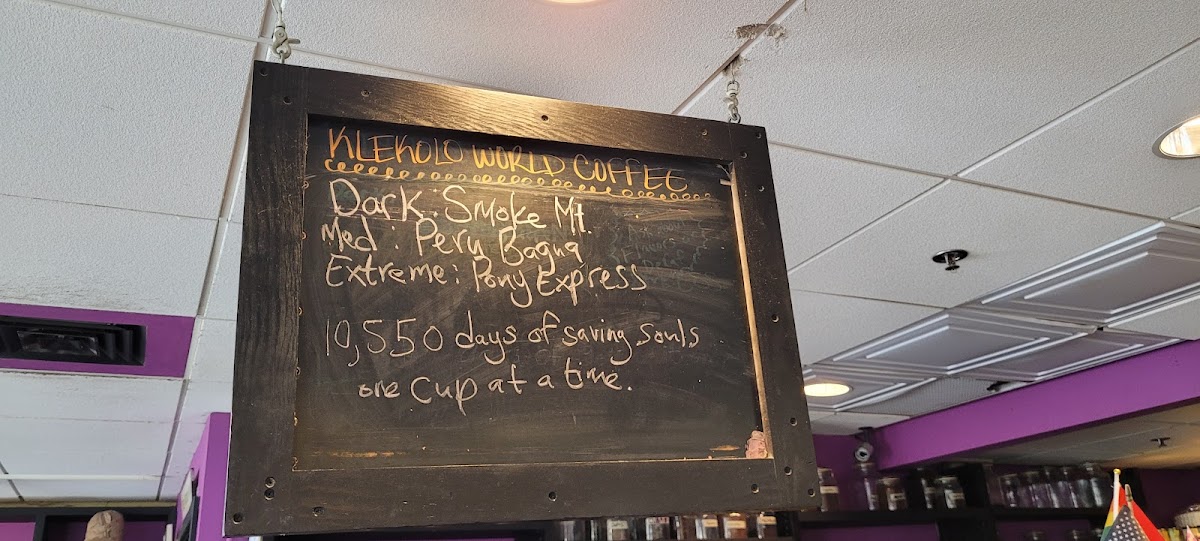 KLEKOLO WORLD COFFEE
Dark: Smoke Mt.
Med: Peru Bagua
Extreme: Pony Express
10,550 days of saving souls
one cup at a time.